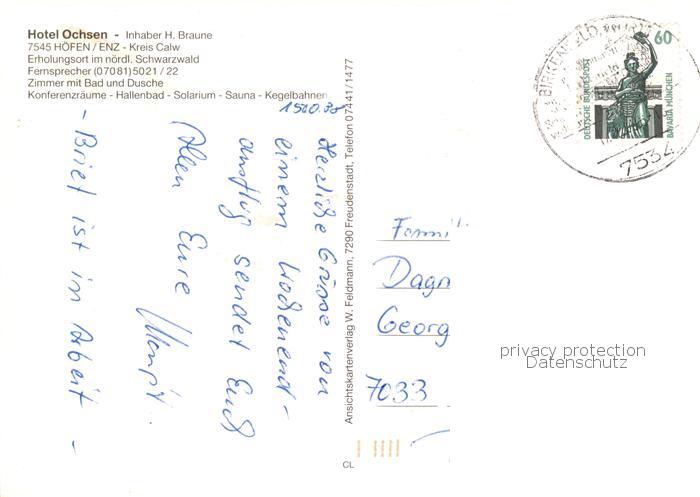 Hotel Ochsen - Inhaber H. Braune
7545 HÖFEN / ENZ - Kreis Calw
Erholungsort im nördl. Schwarzwald
Fernsprecher (07081) 5021 / 22
Zimmer mit Bad und Dusche
Konferenzräume - Hallenbad - Solarium - Sauna - Kegelbahnen
Herzliche Grüße von
einem Wochenend-
ausflug sendet Euch
Allen Eure
- Brief ist in Arbeit -
Ansichtskartenverlag W. Feldmann, 7290 Freudenstadt, Telefon 07441/1477
CL
BIRKENFELD, WÜRTT
7534
60
DEUTSCHE BUNDESPOST
BAVARIA MÜNCHEN
Fami
Dagn
Georg
7033
privacy protection
Datenschutz